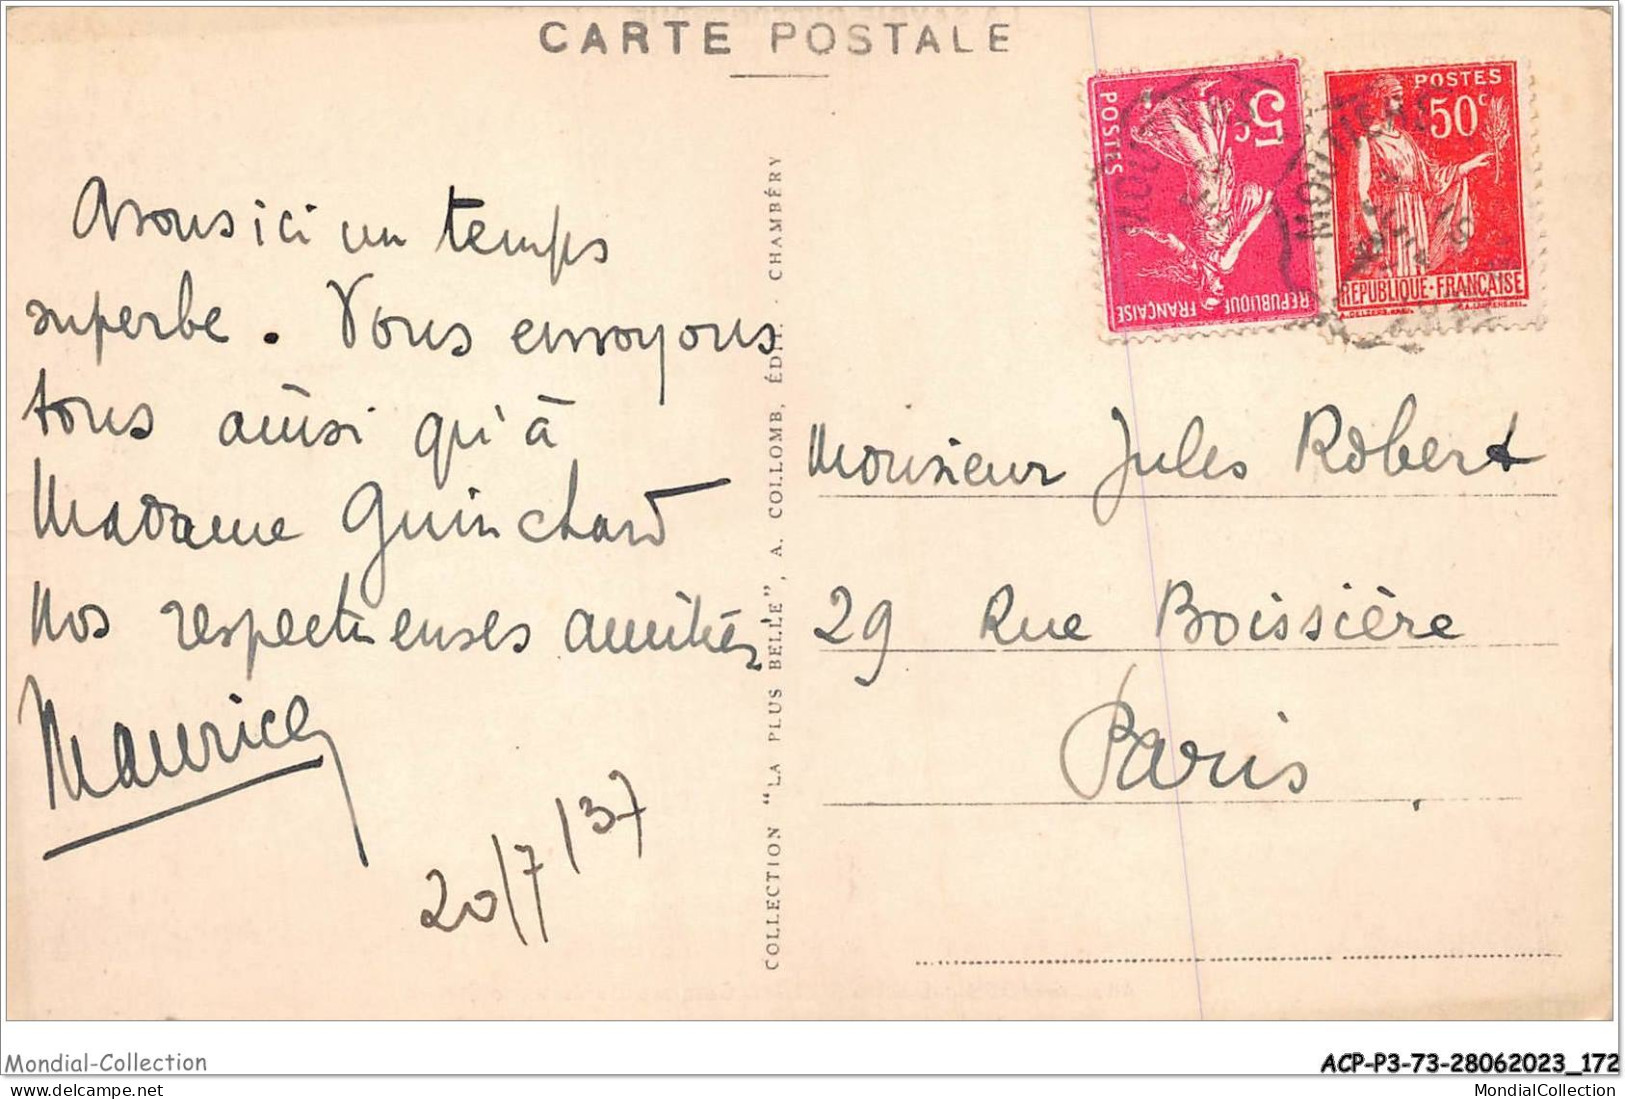 CARTE POSTALE
Avons ici un temps
superbe. Vous envoyons
tous ainsi qu'à
Madame Guinchard
nos respectueuses amitiés
Maurice
20/7/37
COLLECTION "LA PLUS BELLE", A. COLLOMB, ÉDIT. · CHAMBÉRY
5c
POSTES
REPUBLIQUE FRANÇAISE
POSTES
50c
REPUBLIQUE·FRANÇAISE
MOUTIERS
MOUTIERS
Monsieur Jules Robert
29 Rue Boissière
Paris
Mondial-Collection
ACP-P3-73-28062023_172
delcampe.net
MondialCollection